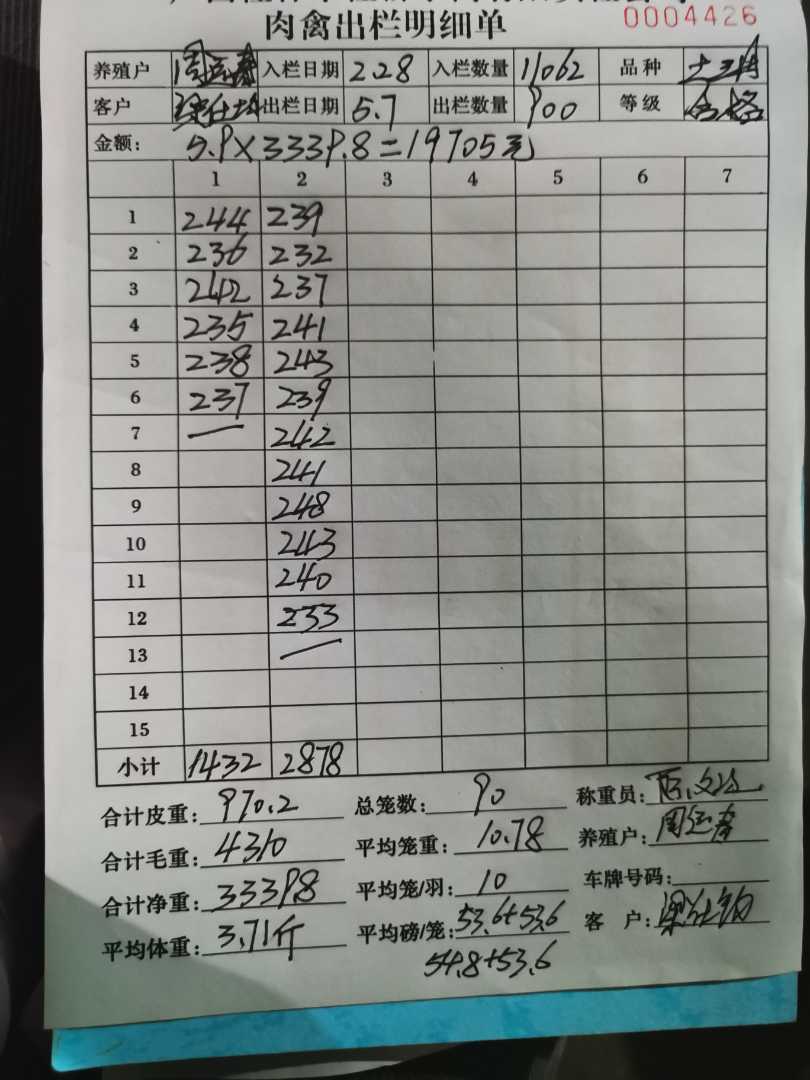 肉禽出栏明细单
0004426
养殖户 周运春 入栏日期 2.28 入栏数量 11062 品种
客户 出栏日期 5.7 出栏数量 900 等级 合格
金额: 5.9×3339.8=19705元
1 2 3 4 5 6 7
1 244 239
2 236 232
3 242 237
4 235 241
5 238 243
6 237 239
7 — 242
8 241
9 248
10 243
11 240
12 233
13 —
14
15
小计 1432 2878
合计皮重: 970.2 总笼数: 90 称重员:
合计毛重: 4310 平均笼重: 10.78 养殖户: 周运春
合计净重: 3339.8 平均笼/羽: 10 车牌号码:
平均体重: 3.71斤 平均磅/笼: 53.6+53.6 客 户:
54.8+53.6